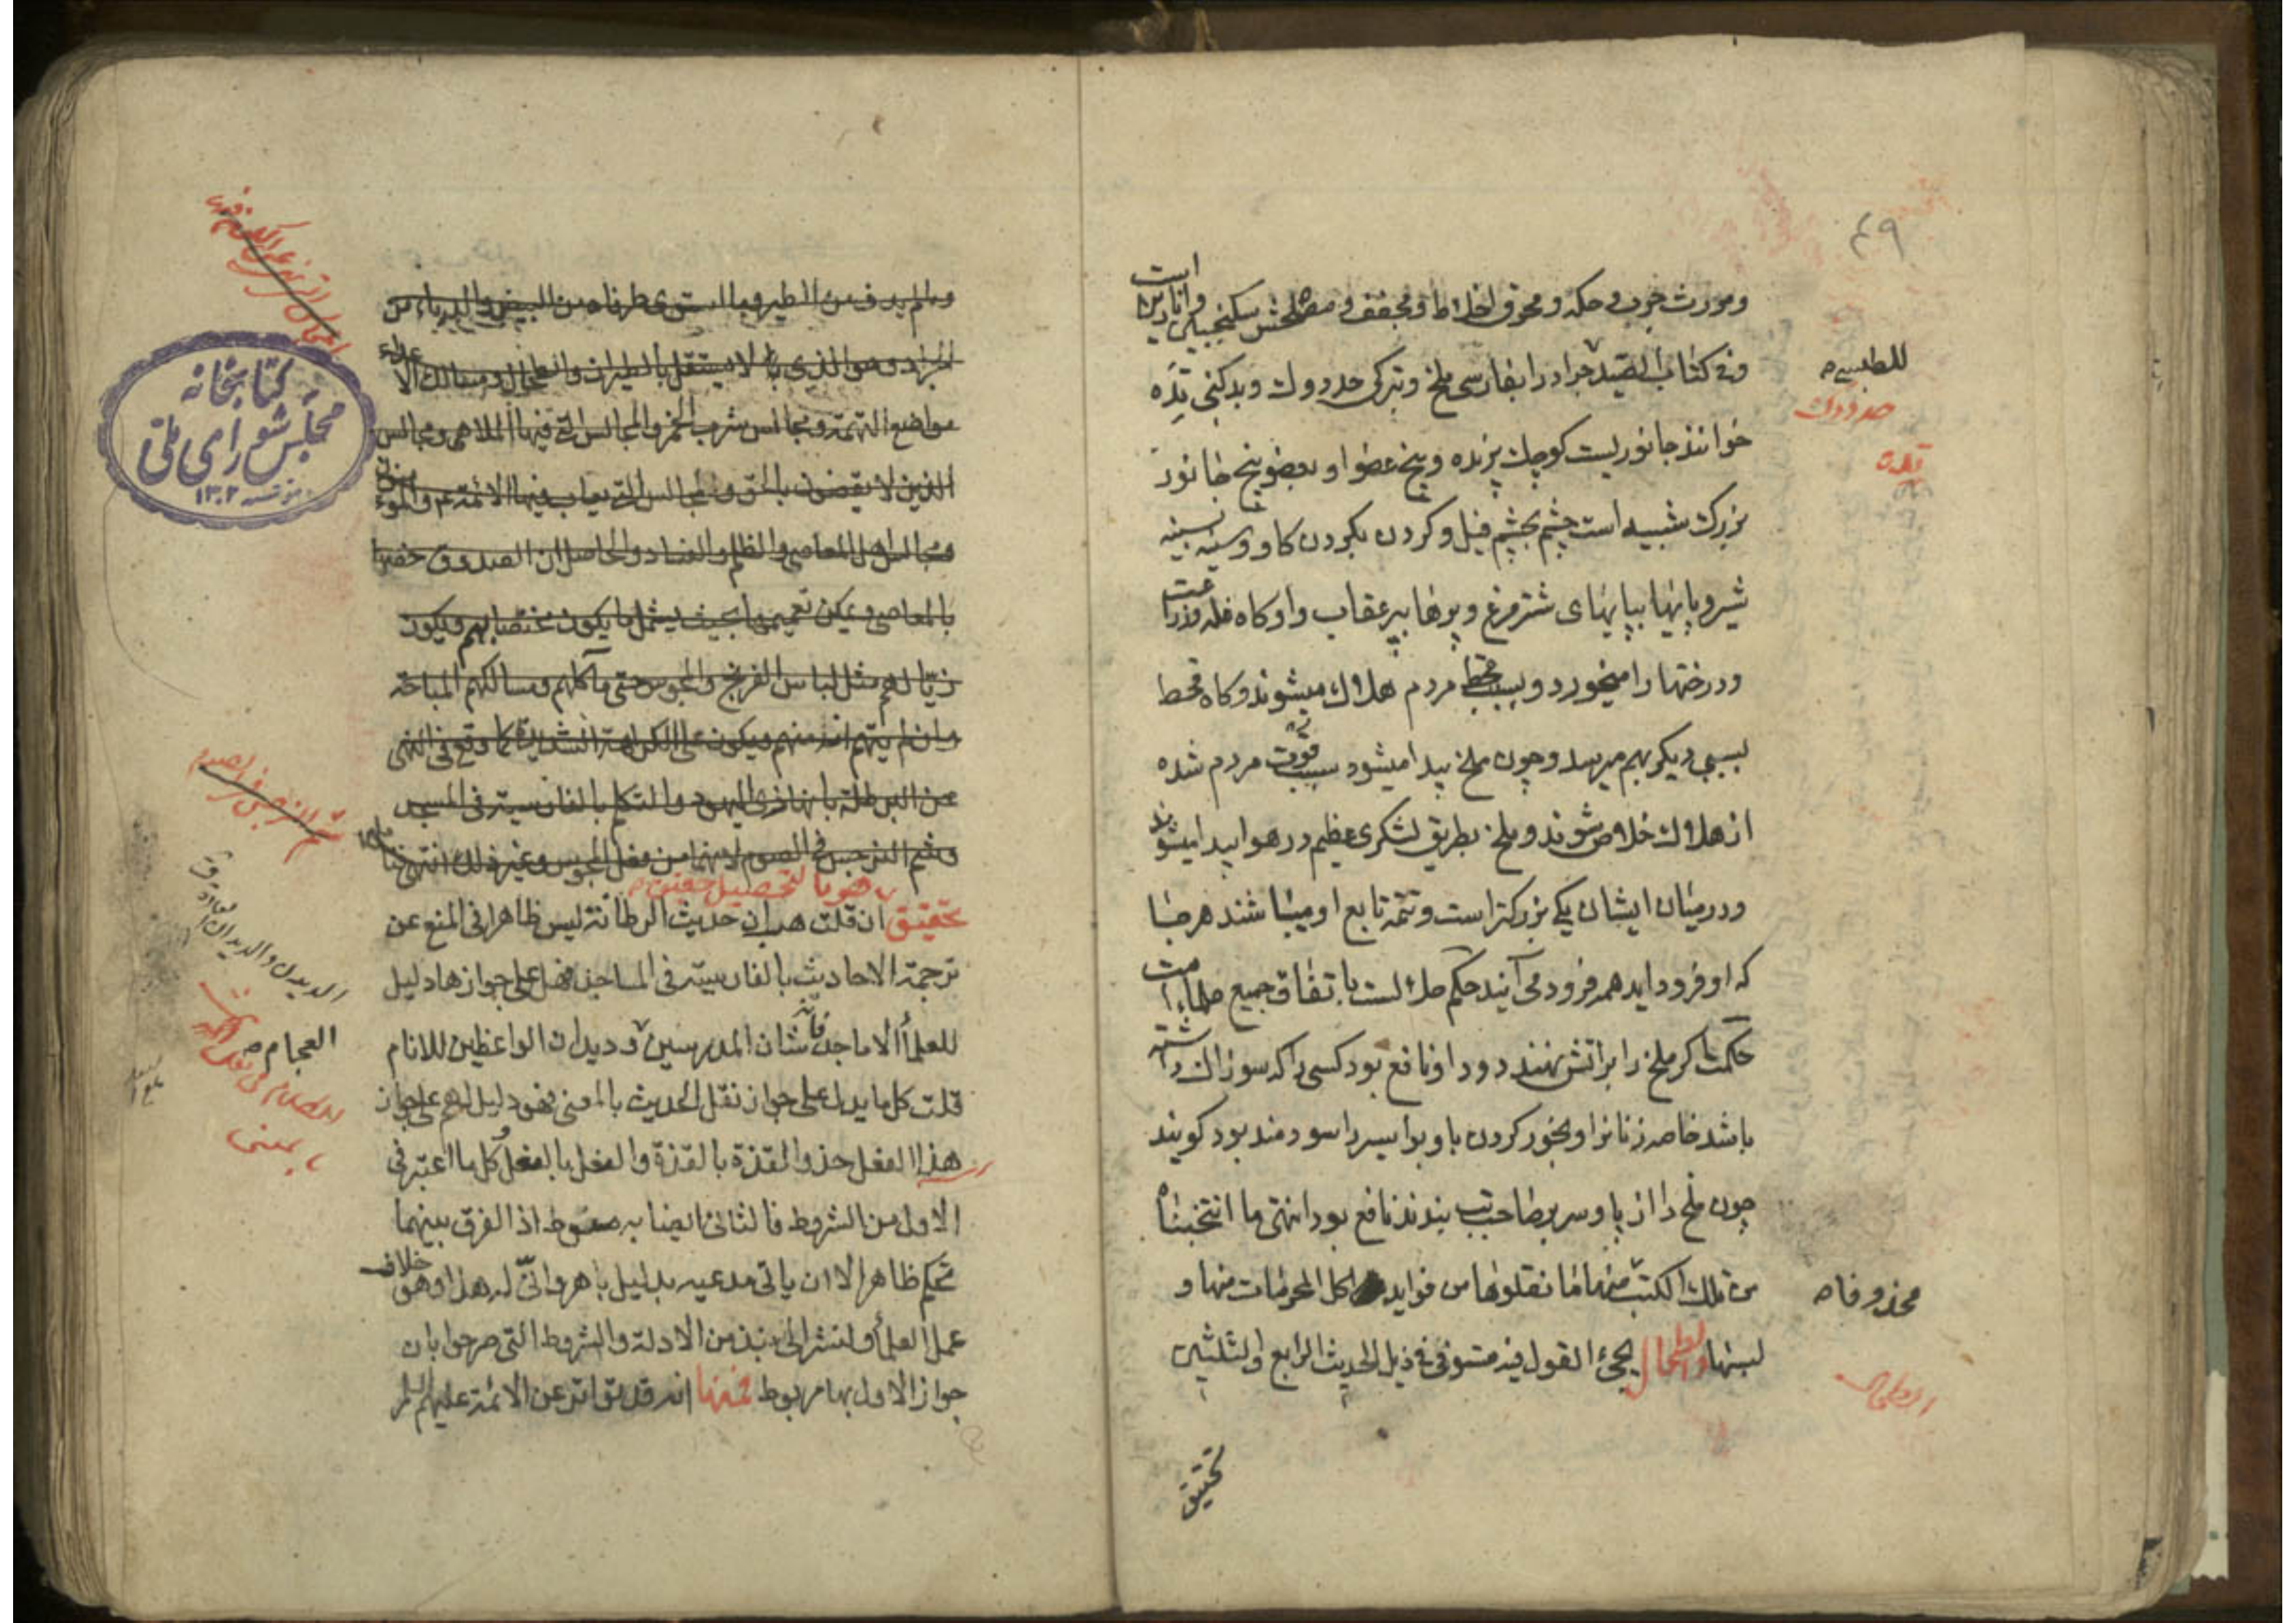 ۴۹
ومورث جرب و حکه و محرق اخلاط و مجفف و مصلحش سکنجبین وانارین است
وفی کتاب الصید جراد را بفارسی ملخ و بترکی حدروك وبدکنی تده
خوانند جانوریست کوچك پرنده و پنج عضو او بعضو پنج جانور
بزرك شبیه است چشم بچشم فیل و کردن بکردن کاو و سینه بسینه
شیر و پایها بپایهای شتر مرغ و پرها بپر عقاب و او کاه غله وزراعت
ودرختها را میخورد و بسبب قحط مردم هلاك میشوند و کاه قحط
بسببی دیکر بهم میرسد و چون ملخ پیدا میشود سبب قوت مردم شده
از هلاك خلاص شوند و ملخ بطریق لشکری عظیم در هوا پیدا میشوند
ودر میان ایشان یکی بزرکتر است و تتمه تابع او میباشند هر جا
که او فرود اید همه فرود می آیند حکم حلالست باتفاق جمیع علماء امت
حکمت اکر ملخ را بر اتش نهند دود او نافع بود کسی را که سوزاك داشته
باشد خاصه زنانرا و بخور کردن باو بواسیر را سودمند بود کویند
چون ملخ دراز پا و سر بر صاحب تب بندند نافع بود انتهی ما انتخبناه
من تلك الکتب منها ما نقلوها من فواید اکل المحرمات منها و
لبسها والطحال یجئ القول فیه مستوفی فی ذیل الحدیث الرابع والثلثین
تحقیق
للطبسی
حدروك
تده
محذوفا
الطحال
ومالم یدف من الطیر وما استوی طرفاه من البیض والدباء من
الجراد وهو الذی لا یستقل بالطیران والطحال ومسالك الاعداء
مواضع التهمة ومجالس شرب الخمر والمجالس التی فیها الملاهی ومجالس
الذین لا یقضون بالحق والمجالس التی یعاب فیها الائمة ع والمؤمنون
ومجالس اهل المعاصی والظلم والفساد والحاصل ان الصدوق خصها
بالمعاصی ویمکن تعمیمها بحیث یشمل ما یکون مختصا بهم ویکون
زیا لهم مثل لباس الفرنج والمجوس حتی مآکلهم ومسالکهم المباحة
وان لم یتهم انه منهم ویکون علی الکراهة الشدیدة کما وقع فی النهی
عن البرطلة بانها زی الیهود والتکلم بالفارسیة فی المسجد
وشم النرجس فی الصوم لانهما من فعل المجوس وغیر ذلك انتهی
هو بالتحصیل حقیق
تحقیق ان قلت هب ان حدیث الرطانة لیس ظاهرا فی المنع عن
ترجمة الاحادیث بالفارسیة فی المساجد فهل علی جوازها دلیل
للعلمأ الاماجد فانه شان المدرسین و دیدان الواعظین للانام
قلت کل ما یدل علی جواز نقل الحدیث بالمعنی فهو دلیل لهم علی جواز
هذا الفعل حذو القذة بالقذة والفعل بالفعل وکل ما اعتبر فی
الاول من الشروط فالثانی ایضا به منوط اذ الفرق بینهما
تحکم ظاهر الا ان یاتی مدعیه بدلیل باهر وانی له هذا وهو خلاف
عمل العلمأ ولنشر الی نبذ من الادلة والشروط التی صرحوا بان
جواز الاول بها مربوط فمنها انه قد تواتر عن الائمة علیهم السلام
کتابخانه
مجلس شورای ملی
۱۳۰۲
شم النرجس فی الصوم
الدیدن والدیدان
العجام
بالمعنی